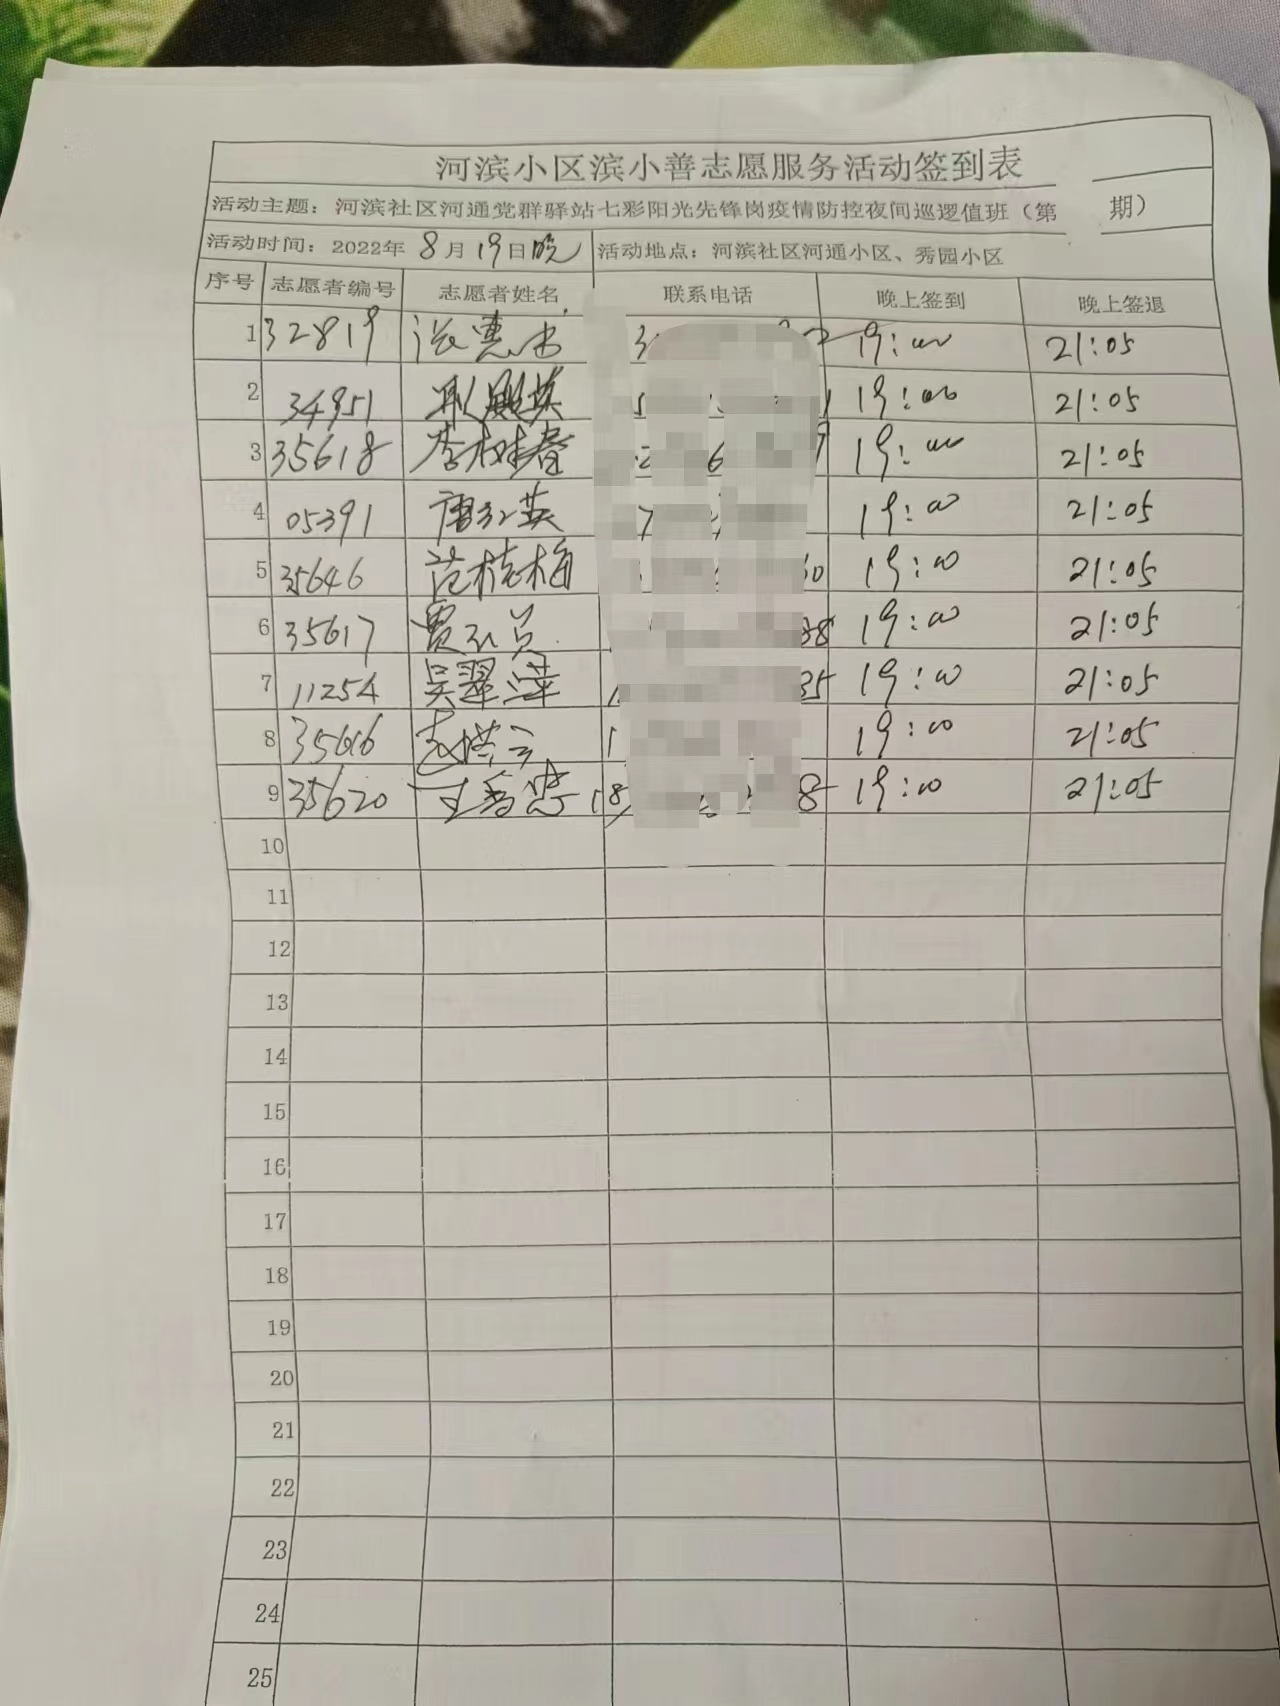 河滨小区滨小善志愿服务活动签到表
活动主题：河滨社区河通党群驿站七彩阳光先锋岗疫情防控夜间巡逻值班（第 期）
活动时间：2022年 8月19日晚 活动地点：河滨社区河通小区、秀园小区
序号 志愿者编号 志愿者姓名 联系电话 晚上签到 晚上签退
1 32819 19:00 21:05
2 34951 19:00 21:05
3 35618 李树春 19:00 21:05
4 05391 19:00 21:05
5 35646 范桂梅 19:00 21:05
6 35617 19:00 21:05
7 11254 吴翠萍 19:00 21:05
8 35616 19:00 21:05
9 35620 19:00 21:05
10
11
12
13
14
15
16
17
18
19
20
21
22
23
24
25